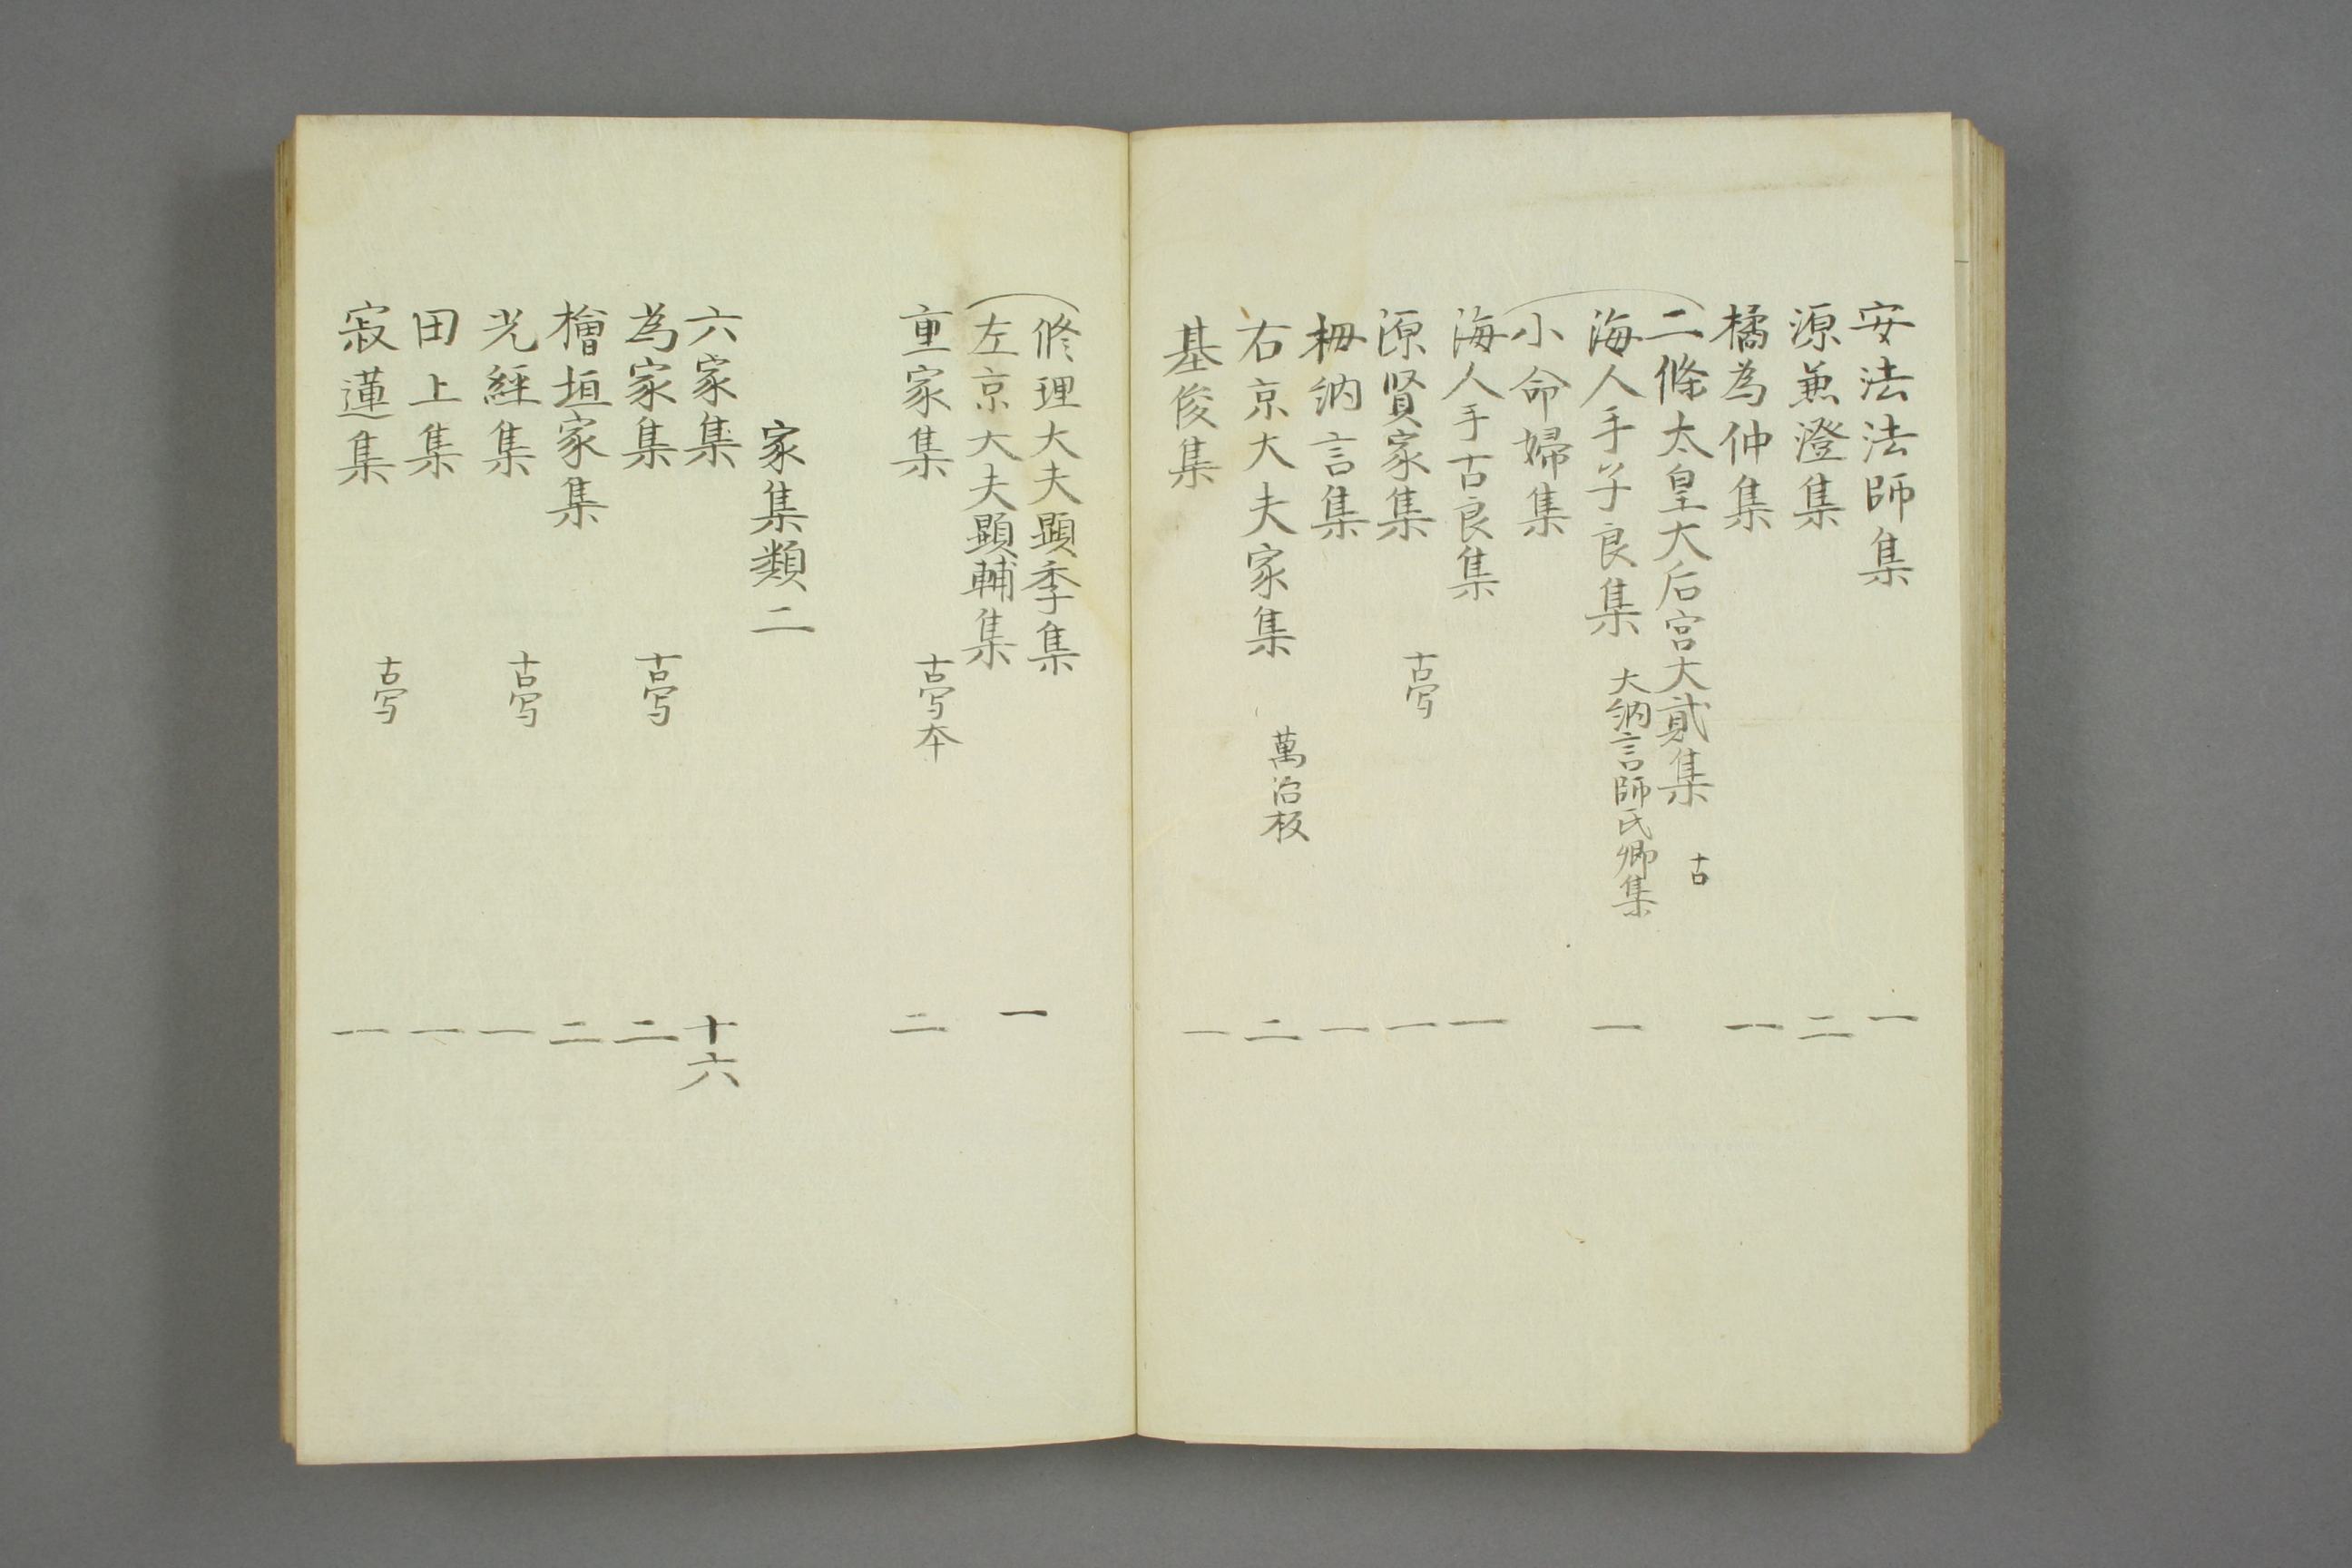 安法法師集　一
源兼澄集　二
橘為仲集　一
二條太皇大后宮大貳集　古
海人手子良集　大納言師氏卿集　一
小命婦集
海人手古良集　一
源賢家集　古写　一
栂納言集　一
右京大夫家集　萬治板　二
基俊集　一
修理大夫顕季集　一
左京大夫顕輔集
重家集　古写本　二
家集類二
六家集　十六
為家集　古写　二
檜垣家集　二
光經集　古写　一
田上集　一
寂蓮集　古写　一